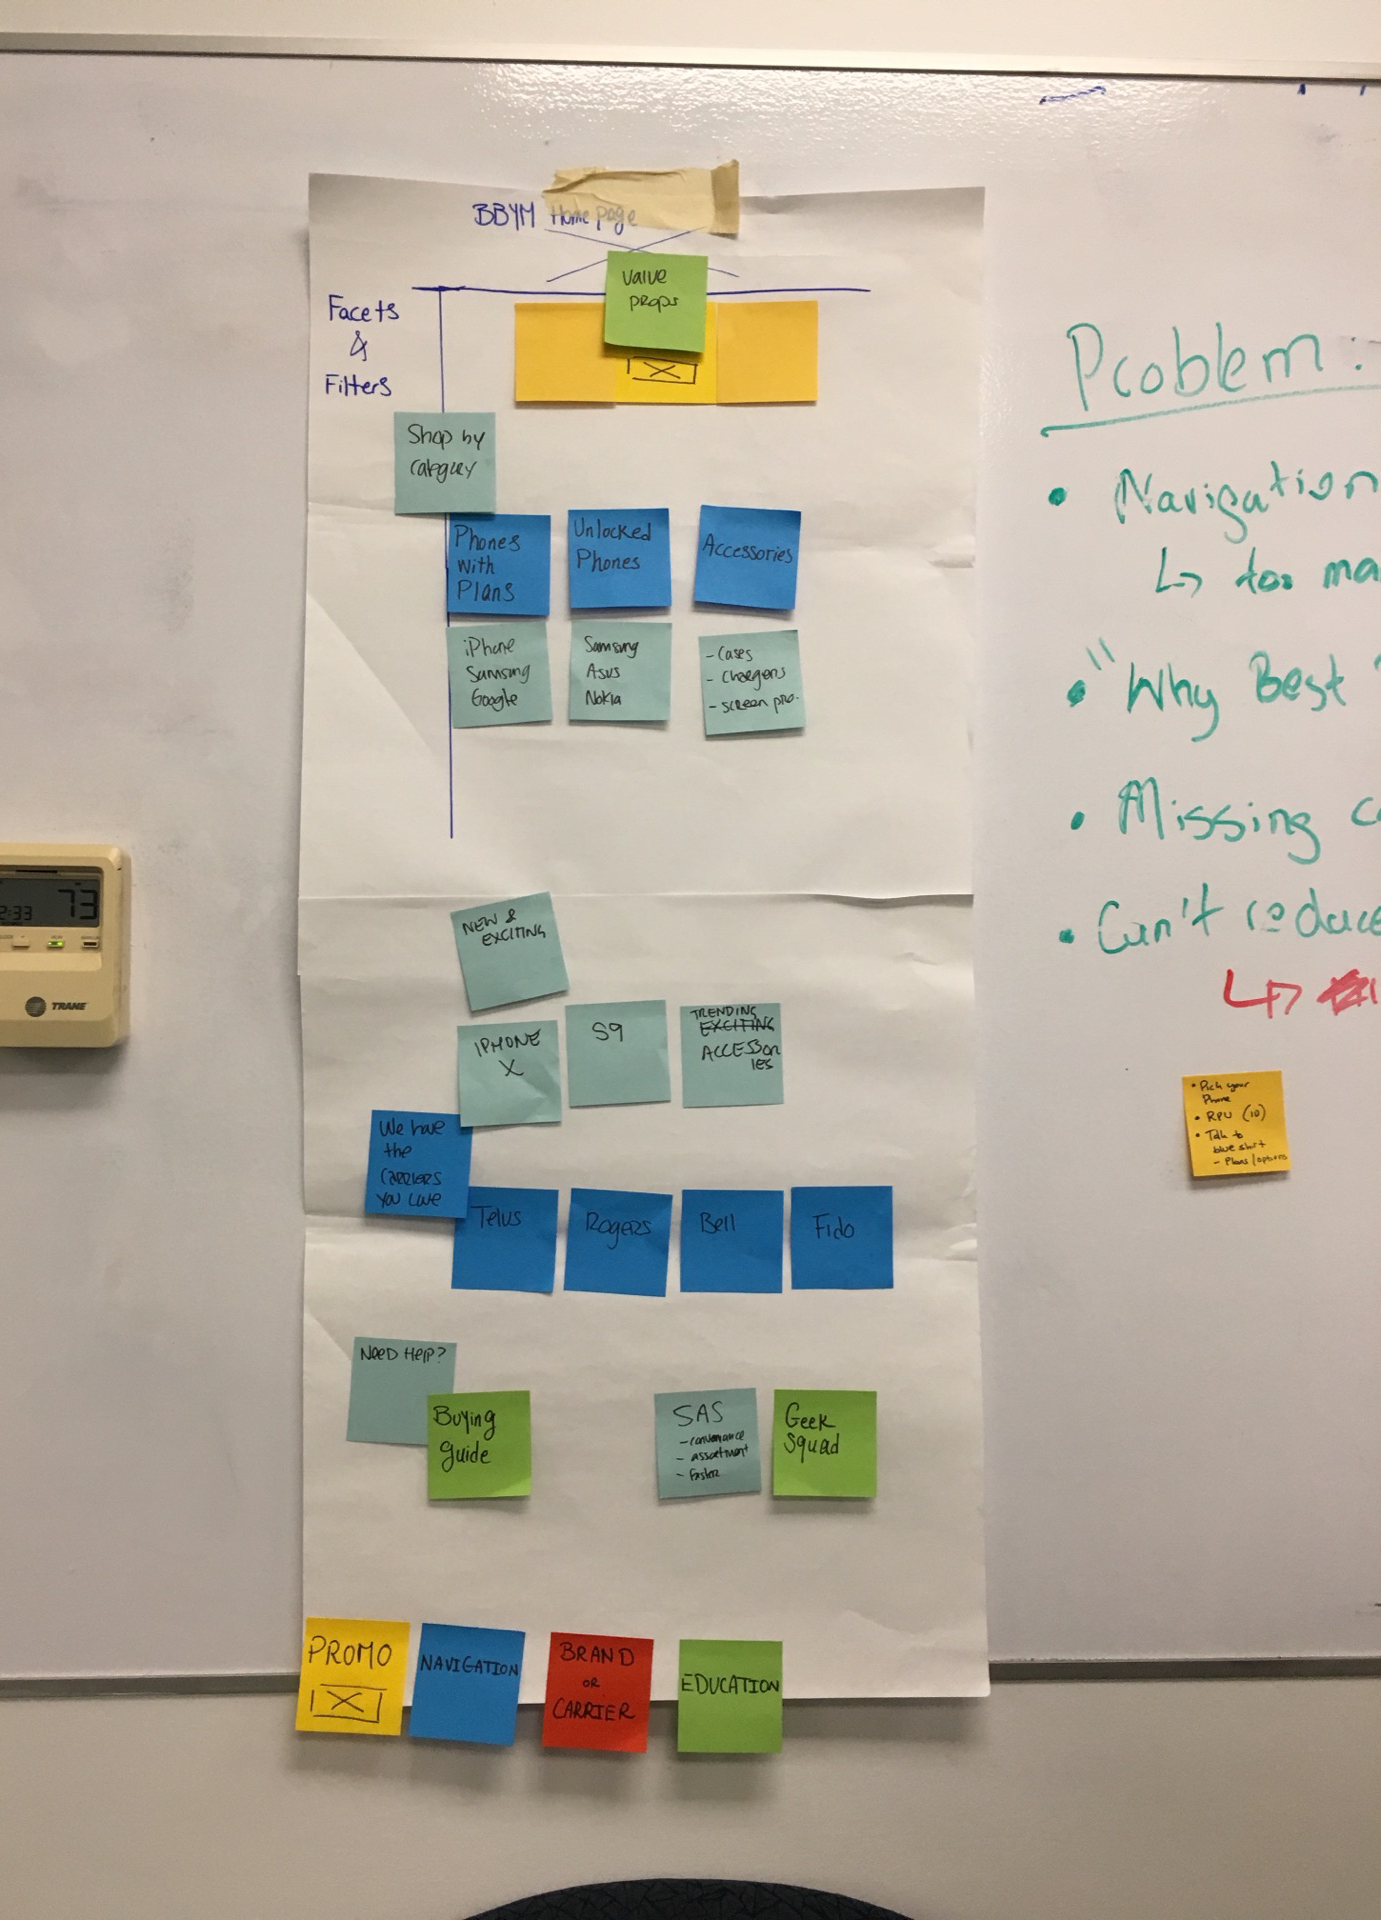 BBYM Home page
Value
props
Facets
&
Filters
Shop by
Category
Phones
with
Plans
Unlocked
Phones
Accessories
iPhone
Samsung
Google
Samsung
Asus
Nokia
- Cases
- Chargers
- screen pro.
NEW &
EXCITING
IPHONE
X
S9
TRENDING
EXCITING
ACCESSOR
IES
We have
the
CARRIERS
YOU LOVE
Telus
Rogers
Bell
Fido
NEED HELP?
Buying
guide
SAS
- convenience
- assortment
- Faster
Geek
Squad
PROMO
NAVIGATION
BRAND
OR
CARRIER
EDUCATION
Problem:
• Navigation
↳ too ma
• "Why Best
• Missing
• Can't reduce
↳
• Pick your
Phone
• RPU (10)
• Talk to
blue shirt
- Plans/options
73
2:33
TRANE